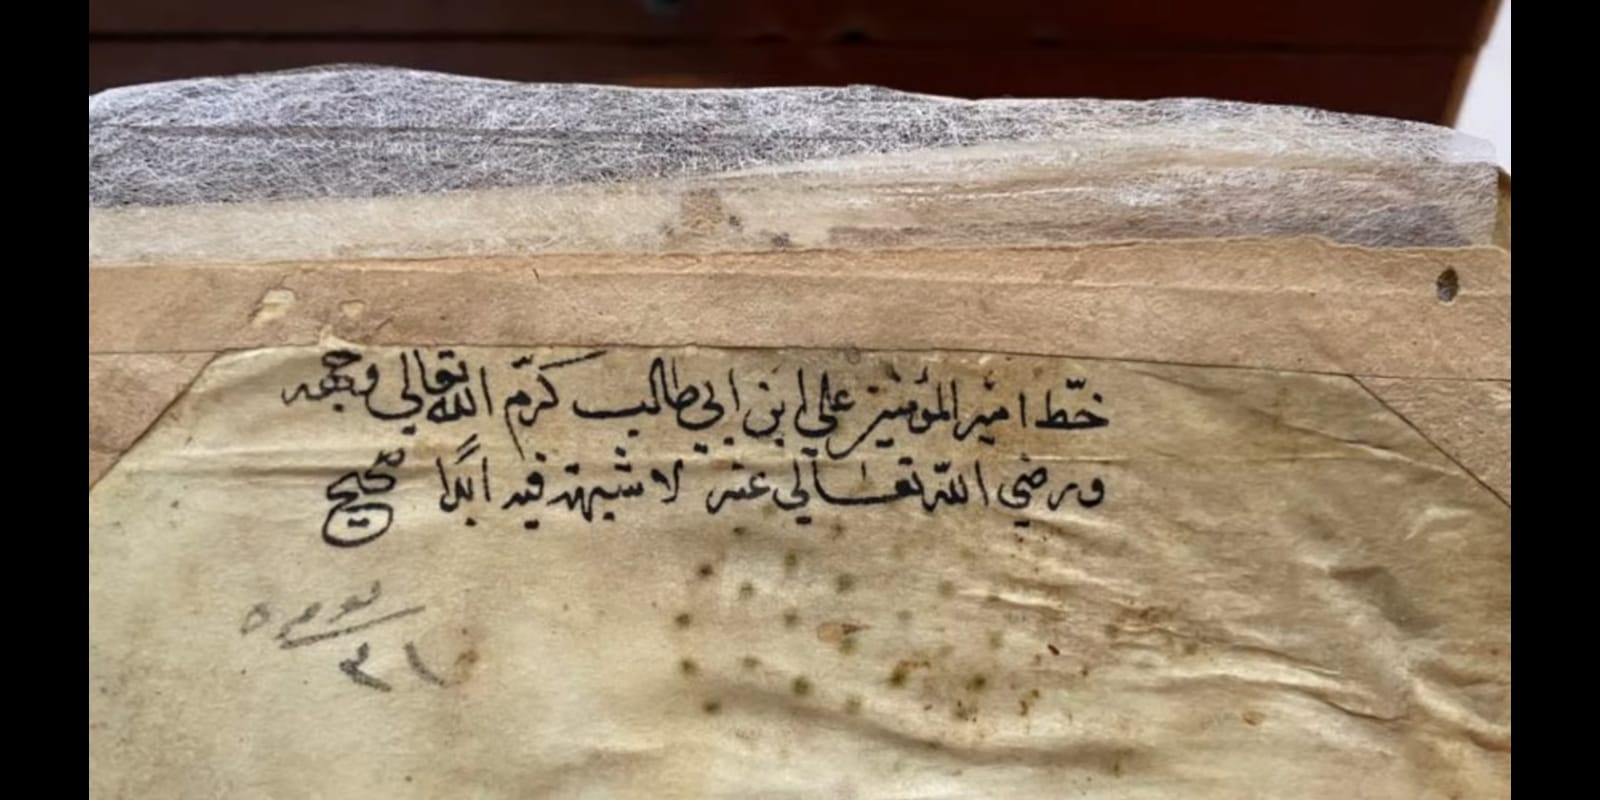 خطّ امير المؤمنين علي ابن ابي طالب كرّم الله تعالى وجهه
ورضي الله تعالى عنه لا شبهة فيه ابدًا صحيح